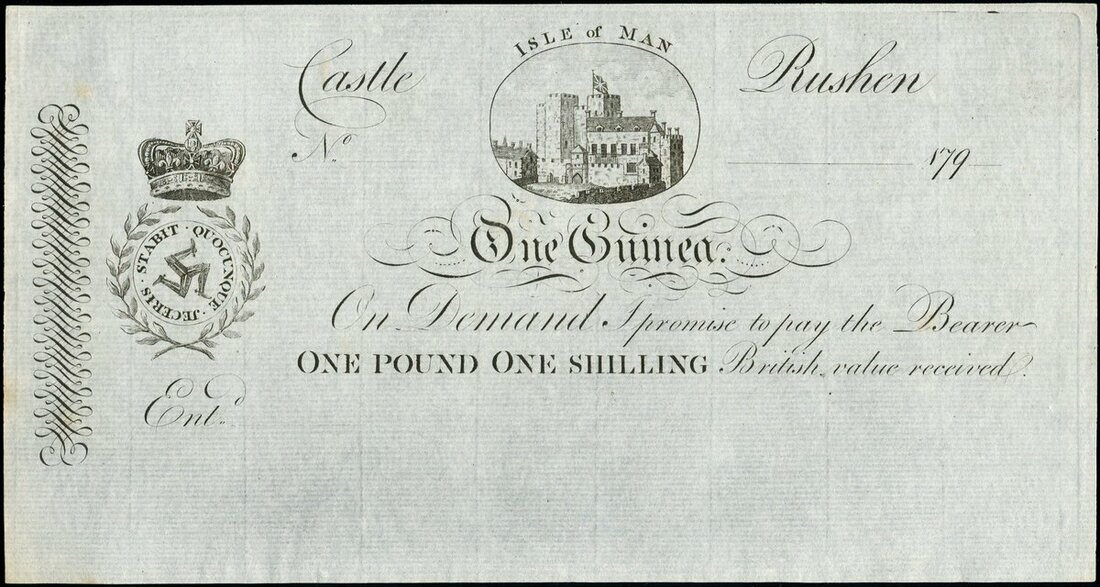 ISLE of MAN
Castle Rushen
No. 179
STABIT · QUOCUNQUE · JECERIS ·
One Guinea.
On Demand I promise to pay the Bearer
ONE POUND ONE SHILLING British value received.
Entd.